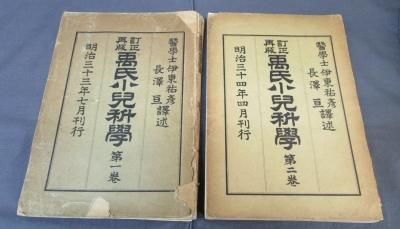 醫學士伊東祐彥譯述
長澤亘
訂正再版
禹氏小兒科學
第一卷
明治三十三年七月刊行
醫學士伊東祐彥譯述
長澤亘
訂正再版
禹氏小兒科學
第二卷
明治三十四年四月刊行